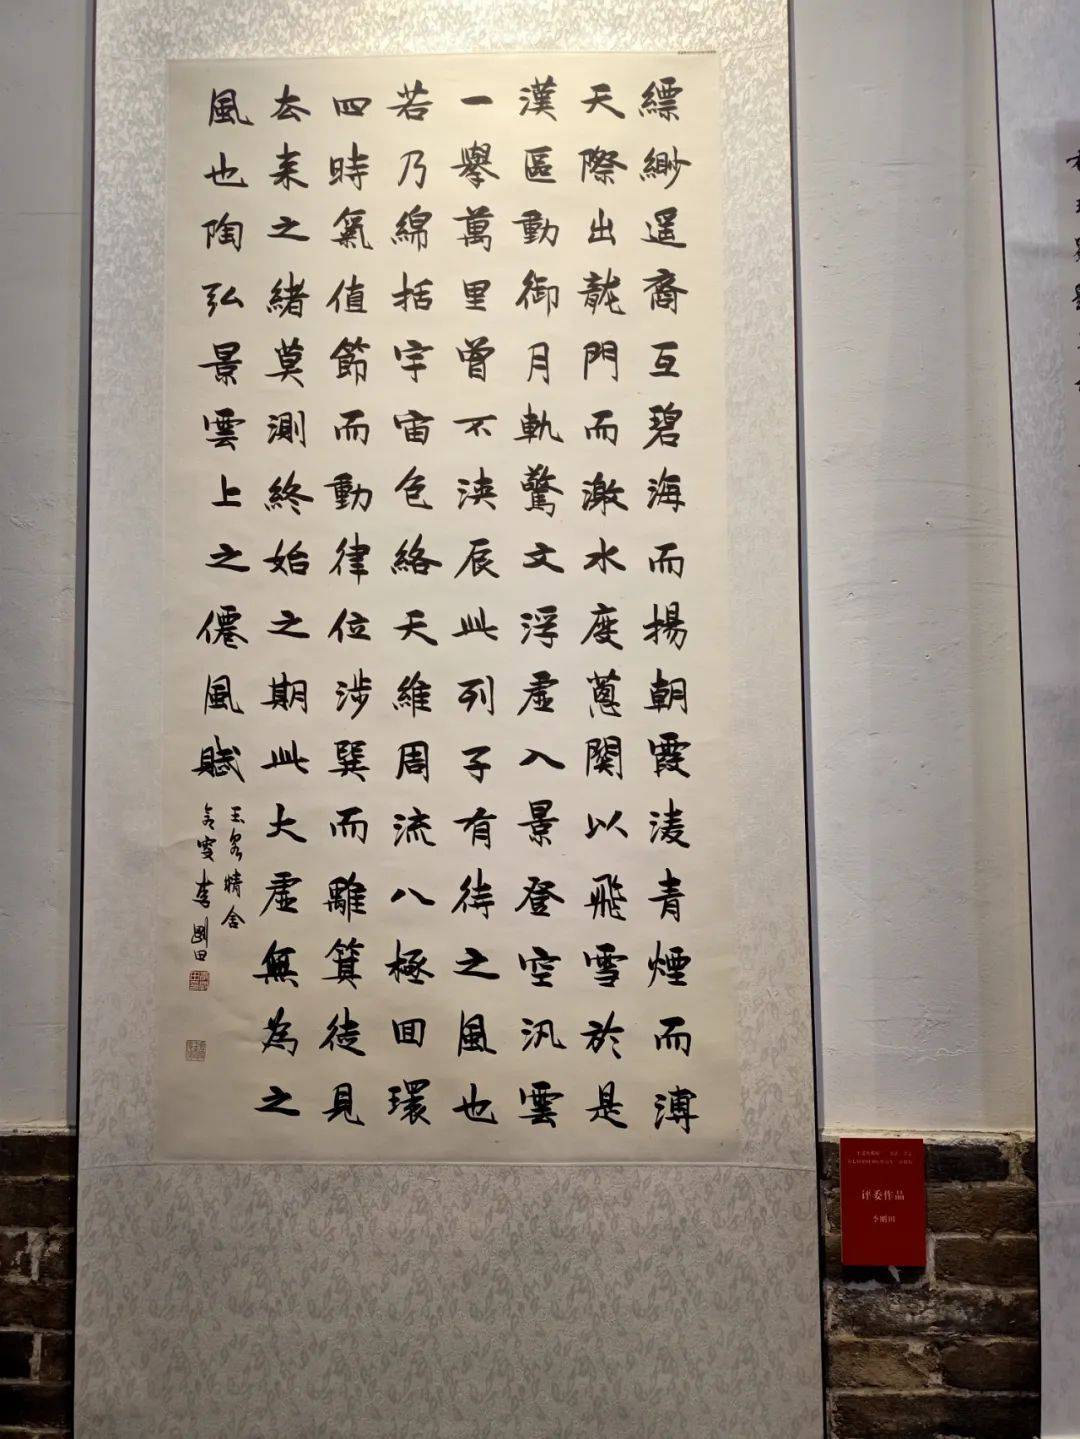 縹緲遥裔亙碧海而揚朝霞淩青煙而溥
天際出龍門而激水度蔥關以飛雪於是
漢區動御月軌驚文浮虛入景登空汎雲
一舉萬里曾不浹辰此列子有待之風也
若乃綿括宇宙包絡天維周流八極回環
四時氣值節而動律位涉巽而離箕徒見
去來之緒莫測終始之期此大虛無為之
風也陶弘景雲上之僊風賦
玉泉精舍
李剛田
评委作品
李刚田